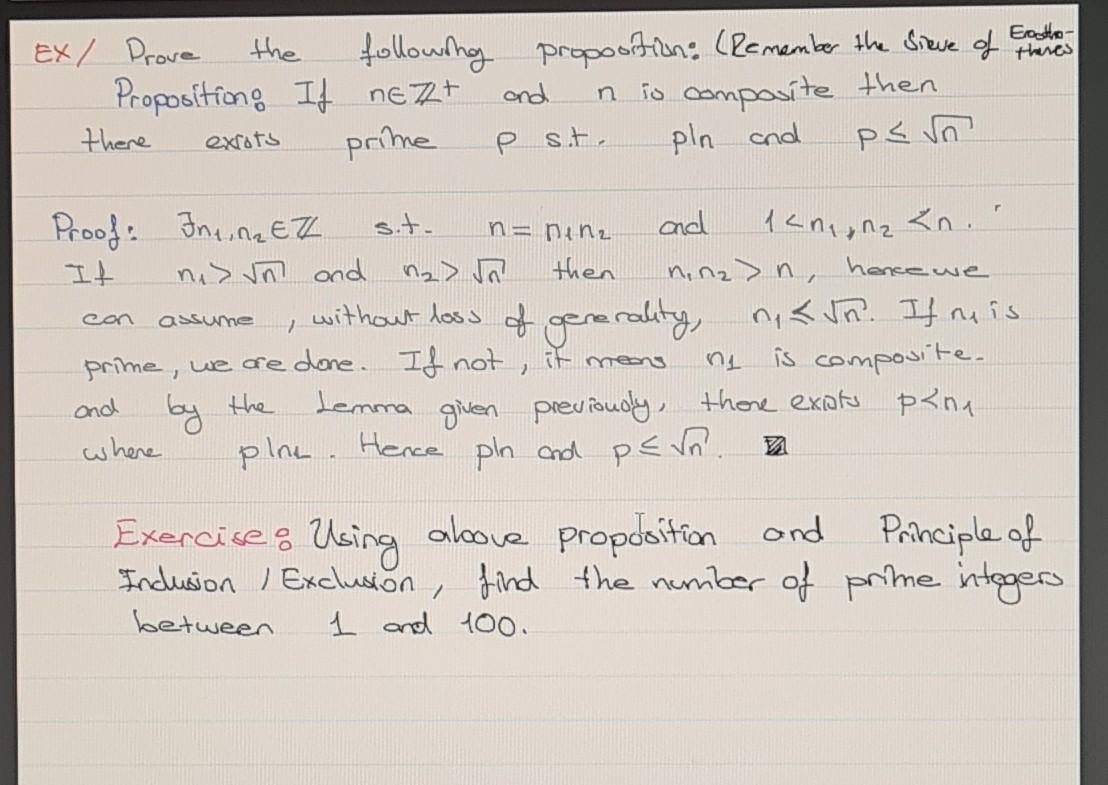 EX/ Prove the following proposition: (Remember the Sieve of Erastho-thenes
Proposition: If n∈ℤ+ and n is composite then
there exists prime p s.t. p|n and p ≤ √n
Proof: ∃n₁,n₂∈ℤ s.t. n = n₁n₂ and 1<n₁,n₂<n.
If n₁>√n and n₂>√n then n₁n₂>n, hence we
can assume, without loss of generality, n₁≤√n. If n₁ is
prime, we are done. If not, it means n₁ is composite.
and by the Lemma given previously, there exists p<n₁
where p|n₁. Hence p|n and p≤√n.
Exercise: Using above proposition and Principle of
Inclusion / Exclusion, find the number of prime integers
between 1 and 100.